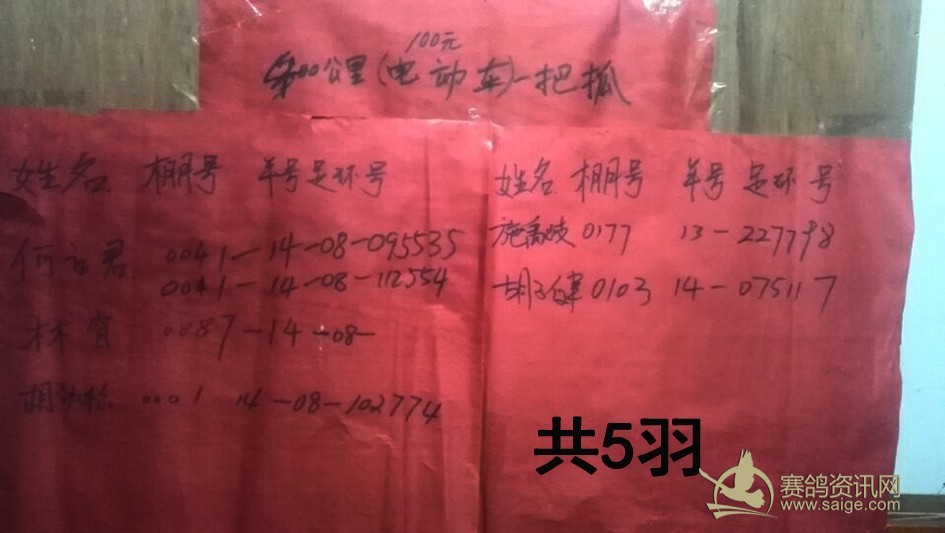 100元
00公里(电动车)一把抓
姓名 棚号 年号足环号
何 君 0041-14-08-095535
0041-14-08-112554
林 0087-14-08-
胡 0001 14-08-102774
姓名 棚号 年号 足环号
施 0177 13-227798
胡 0103 14-075117
共5羽
赛鸽资讯网
www.saige.com